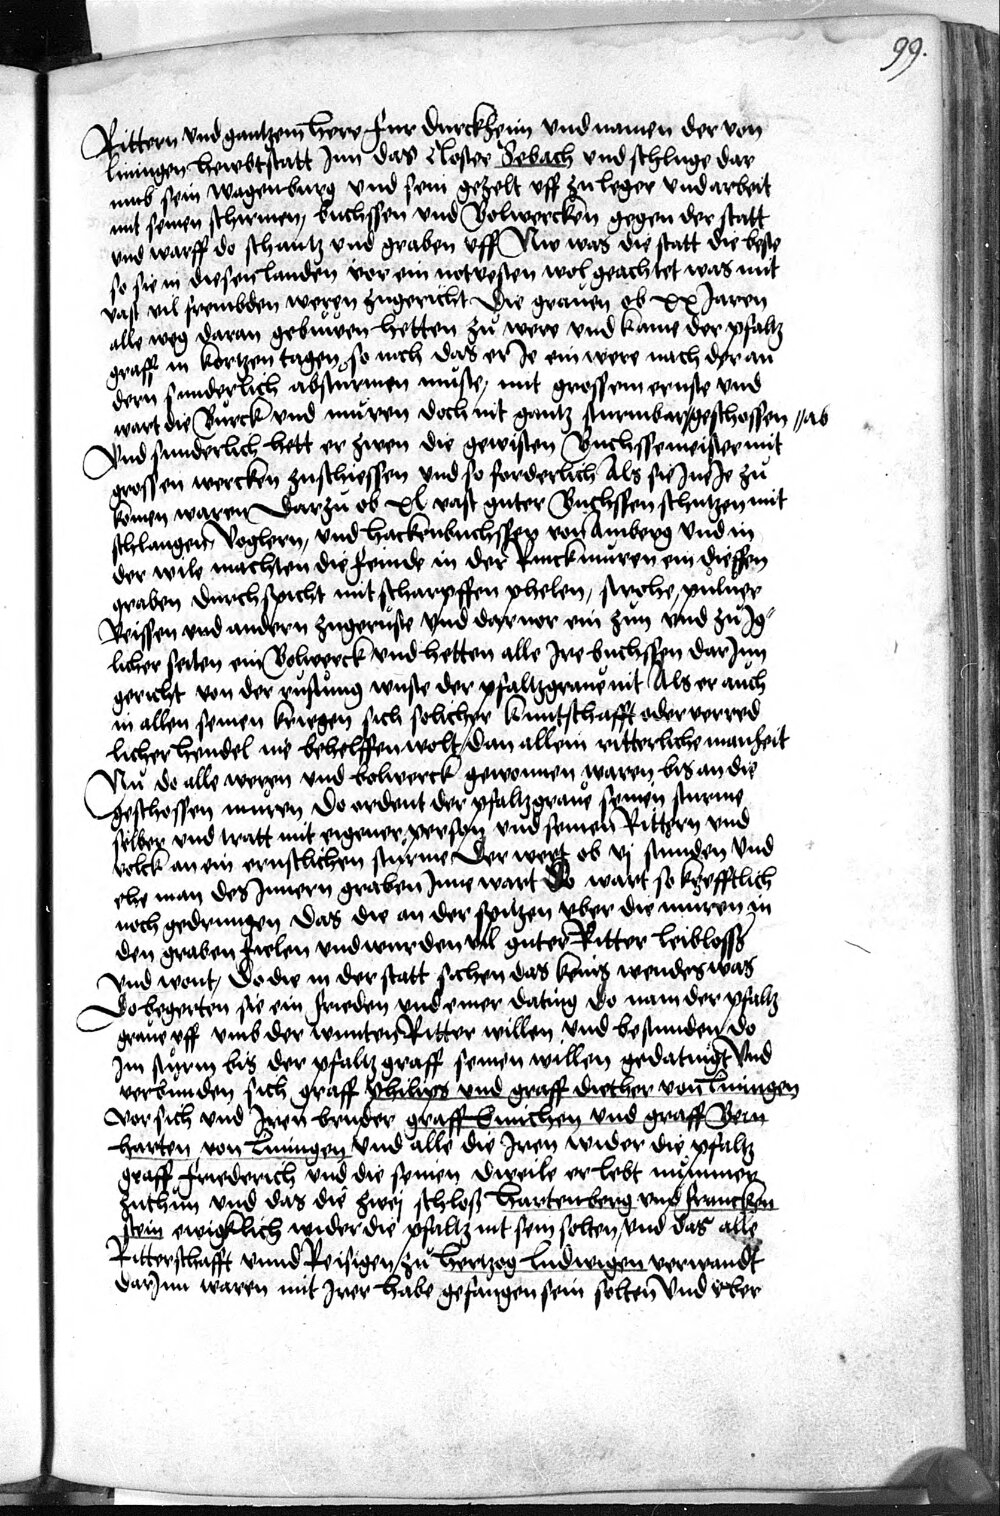 99.
Rittern vnd gantzem here fur durckheim vnd namen der von
liningen hewbtstatt Inn das closter Sebach vnd schluge dar
vmb sein wagenburg vnd sein gezelt vff zu leger vnd arbeit
mit seinen schirmen, buchssen vnd Bolwercken gegen der statt
vnd warff do schantz vnd graben vff Nw was die statt die beste
so sie in diesen landen vor ein notvesten wol geachtet was mit
vast vil frembden weren zugericht Die grauen ob xx Jaren
alle weg daran gebuwen hetten zu were vnd kame der pfaltz
graff in kortzen tagen so nach das er Je ein were nach der an
dern sunderlich absturmen muste, mit grossem ernste vnd
wart die Burck vnd muren doch nit gantz sturmbar geschossen // ab
Vnd sunderlich hett er zwen die gewisten Buchssemeister mit
grossen wercken zuschiessen vnd so forderlich Als sie Jne Je zu
komen waren Darzu ob xl vast guter Buchssenschutzen mit
schlangen, Voglern, vnd hackenbuchssen von Amberg Vnd in
der wile machten die feinde in der Rinckmuren ein dieffen
graben durchspicht mit scharpffen phelen, strohe, puluer
Reissen vnd andern zugeruste Vnd darvor ein zun vnd zu Ig
licher seiten ein Bolwerck vnd hetten alle Ire buchssen darInn
gericht von der rustung wuste der pfaltzgraue nit Als er auch
in allen seinen kriegen sich solicher kuntschafft oder verred
licher hendel nie behelffen wolt, dan allein ritterliche manheit
Nu do alle weren vnd bolwerck gewonnen waren bis an die
geschossen muren, Do ordent der pfaltzgraue seinen sturme
selber vnd tratt mit eigener person vnd seinen Rittern vnd
volck an ein ernstlichen sturme Der wert ob vj stunden Vnd
ehe man des Innern graben Inne wart Do wart so krefftlich
noch gedrungen Das die an der spitzen vber die muren in
den graben fielen vnd wurden vil guter Ritter leibloss
vnd wont, Do die in der statt sahen das keins wendes was
Do begerten sie ein frieden vnd einer dating Do nam der pfaltz
graue vff vmb der wunten Ritter willen vnd bestunden do
Im sturm bis der pfaltzgraff seinen willen gedatingt Vnd
verbunden sich graff Philips vnd graff diether von liningen
vor sich vnd Iren bruder graff Emichen vnd graff Bern
harten von liningen Vnd alle die Iren wider die pfaltz
graff friederich vnd die seinen dweile er lebt nummer
zuthun vnd das die zwej schloß hartenberg vnd francken
stein ewigklich wider die pfaltz nit sein solten, vnd das alle
Ritterschafft vnnd Reisigen zu hertzog ludwigen verwandt
darInn waren mit Irer habe gefangen sein solten Vnd vber